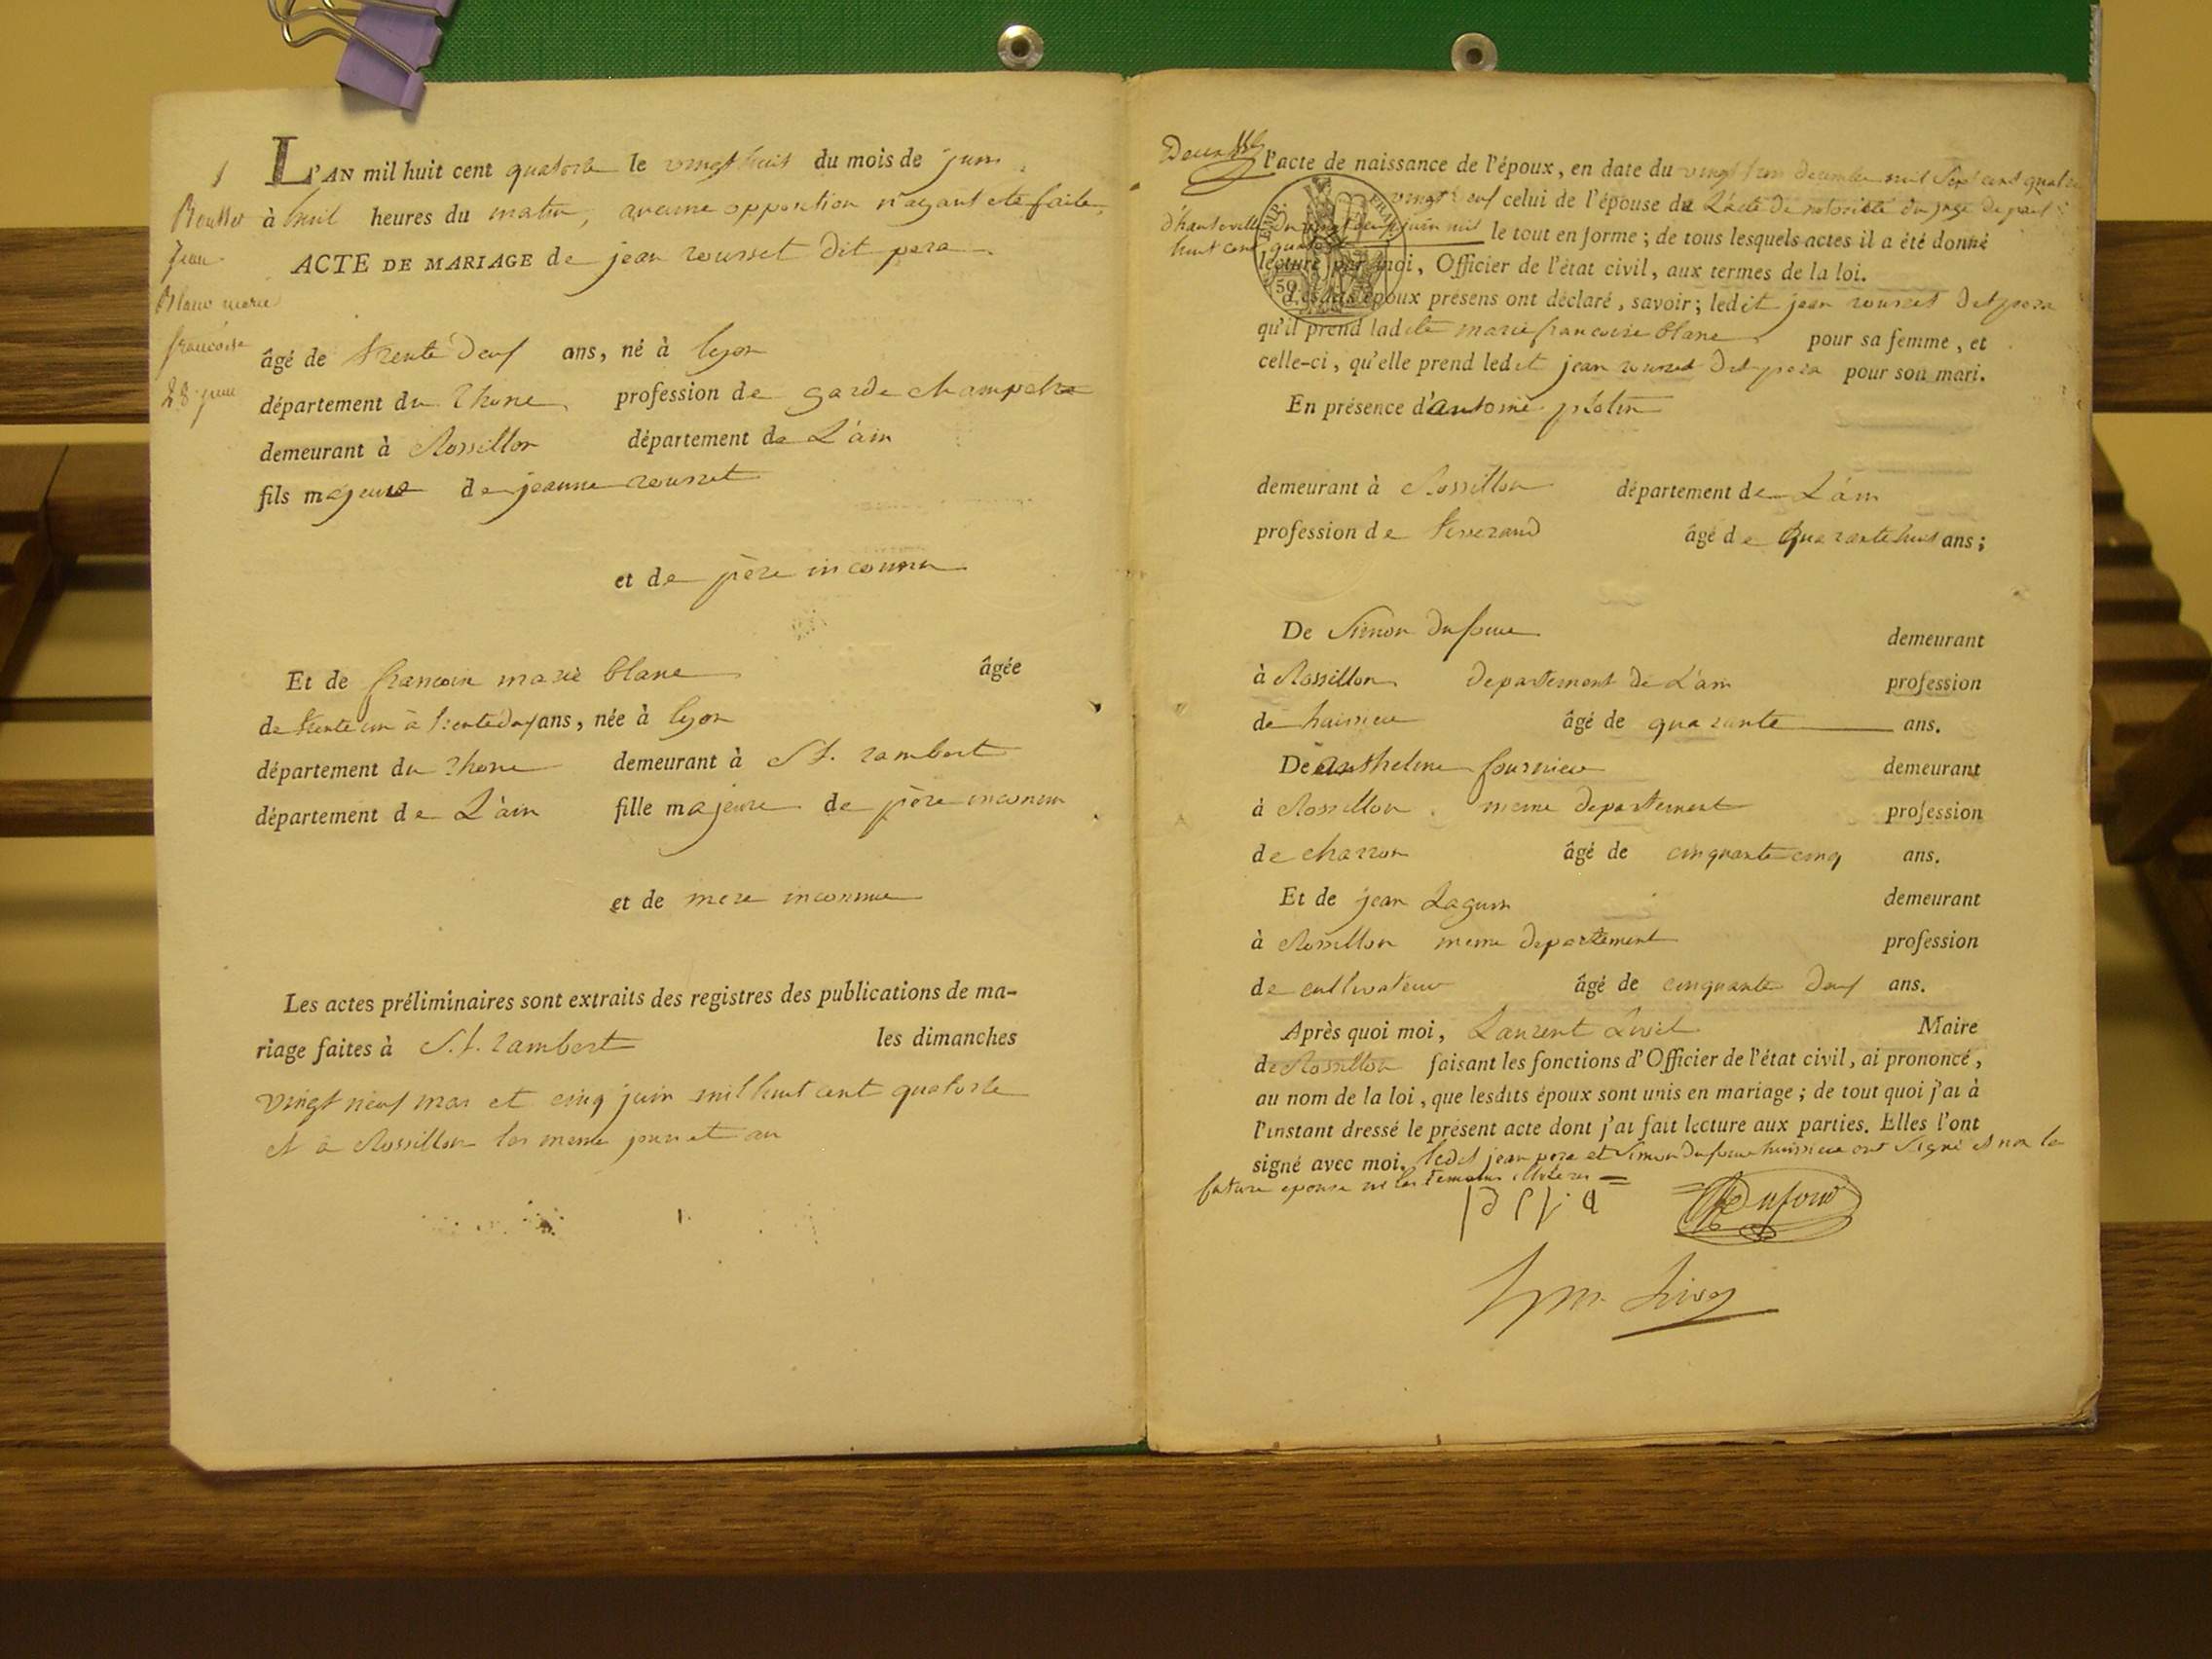 1
Rousset
Jean
Blanc marie
francoise
28 juin
L'AN mil huit cent quatorze le vingt huit du mois de juin
à huit heures du matin, aucune opposition n'ayant eté faite,
ACTE DE MARIAGE de jean rousset dit pera
âgé de trente deux ans, né à lyon
département du Rhone profession de garde champetre
demeurant à Rossillon département de L'ain
fils majeur de jeanne rousset
et de père inconnu
Et de francoise marie blanc âgée
de trente un à trente deux ans, née à lyon
département du rhone demeurant à St. rambert
département de L'ain fille majeure de père inconnu
et de mere inconnue
Les actes préliminaires sont extraits des registres des publications de ma-
riage faites à St. rambert les dimanches
vingt neuf mai et cinq juin mil huit cent quatorze
et à Rossillon les meme jour et an
l'acte de naissance de l'époux, en date du vingt décembre mil sept cent quatre
vingt celui de l'épouse de L'acte de notoriété du juge de paix
d'hauteville du juin mil
huit cent quatorze le tout en forme; de tous lesquels actes il a été donné
lecture par moi, Officier de l'état civil, aux termes de la loi.
Lesdits époux présens ont déclaré, savoir; ledit jean rousset dit pera
qu'il prend ladite marie francoise blanc pour sa femme, et
celle-ci, qu'elle prend ledit jean rousset dit pera pour son mari.
En présence d'antoine
demeurant à Rossillon département de L'ain
profession de tisserand âgé de quarante huit ans;
De Simon dufour demeurant
à Rossillon departement de L'ain profession
de huissier âgé de quarante ans.
De anthelme fournier demeurant
à Rossillon meme departement profession
de charron âgé de cinquante cinq ans.
Et de jean Laguin demeurant
à Rossillon meme departement profession
de cultivateur âgé de cinquante deux ans.
Après quoi moi, Laurent Livet Maire
de Rossillon faisant les fonctions d'Officier de l'état civil, ai prononcé,
au nom de la loi, que lesdits époux sont unis en mariage; de tout quoi j'ai à
l'instant dressé le présent acte dont j'ai fait lecture aux parties. Elles l'ont
signé avec moi. ledit jean pera et Simon dufour huissier ont signé et non la
future epouse ni les temoins illiteres
Dufour
Livet